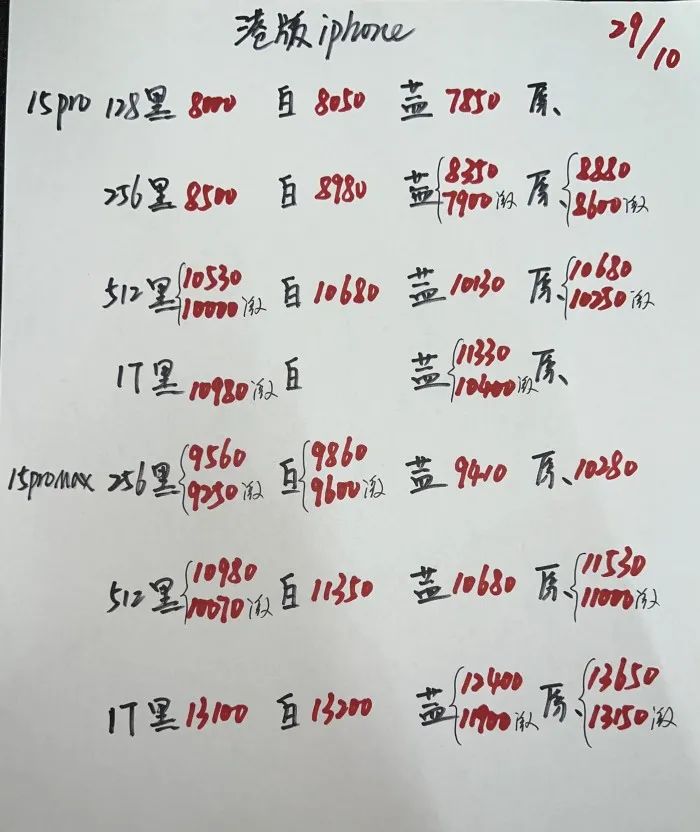 港版iphone 29/10
15pro 128黑 8000 白 8050 蓝 7850 原、
256黑 8500 白 8980 蓝{8350 7900激 原、{8880 8600激
512黑{10530 10000激 白 10680 蓝 10130 原、{10680 10250激
1T黑 10980激 白 蓝{11330 10400激 原、
15promax 256黑{9560 9250激 白{9860 9600激 蓝 9410 原、10280
512黑{10980 10070激 白 11350 蓝 10680 原、{11530 11000激
1T黑 13100 白 13200 蓝{12400 11900激 原、{13650 13150激